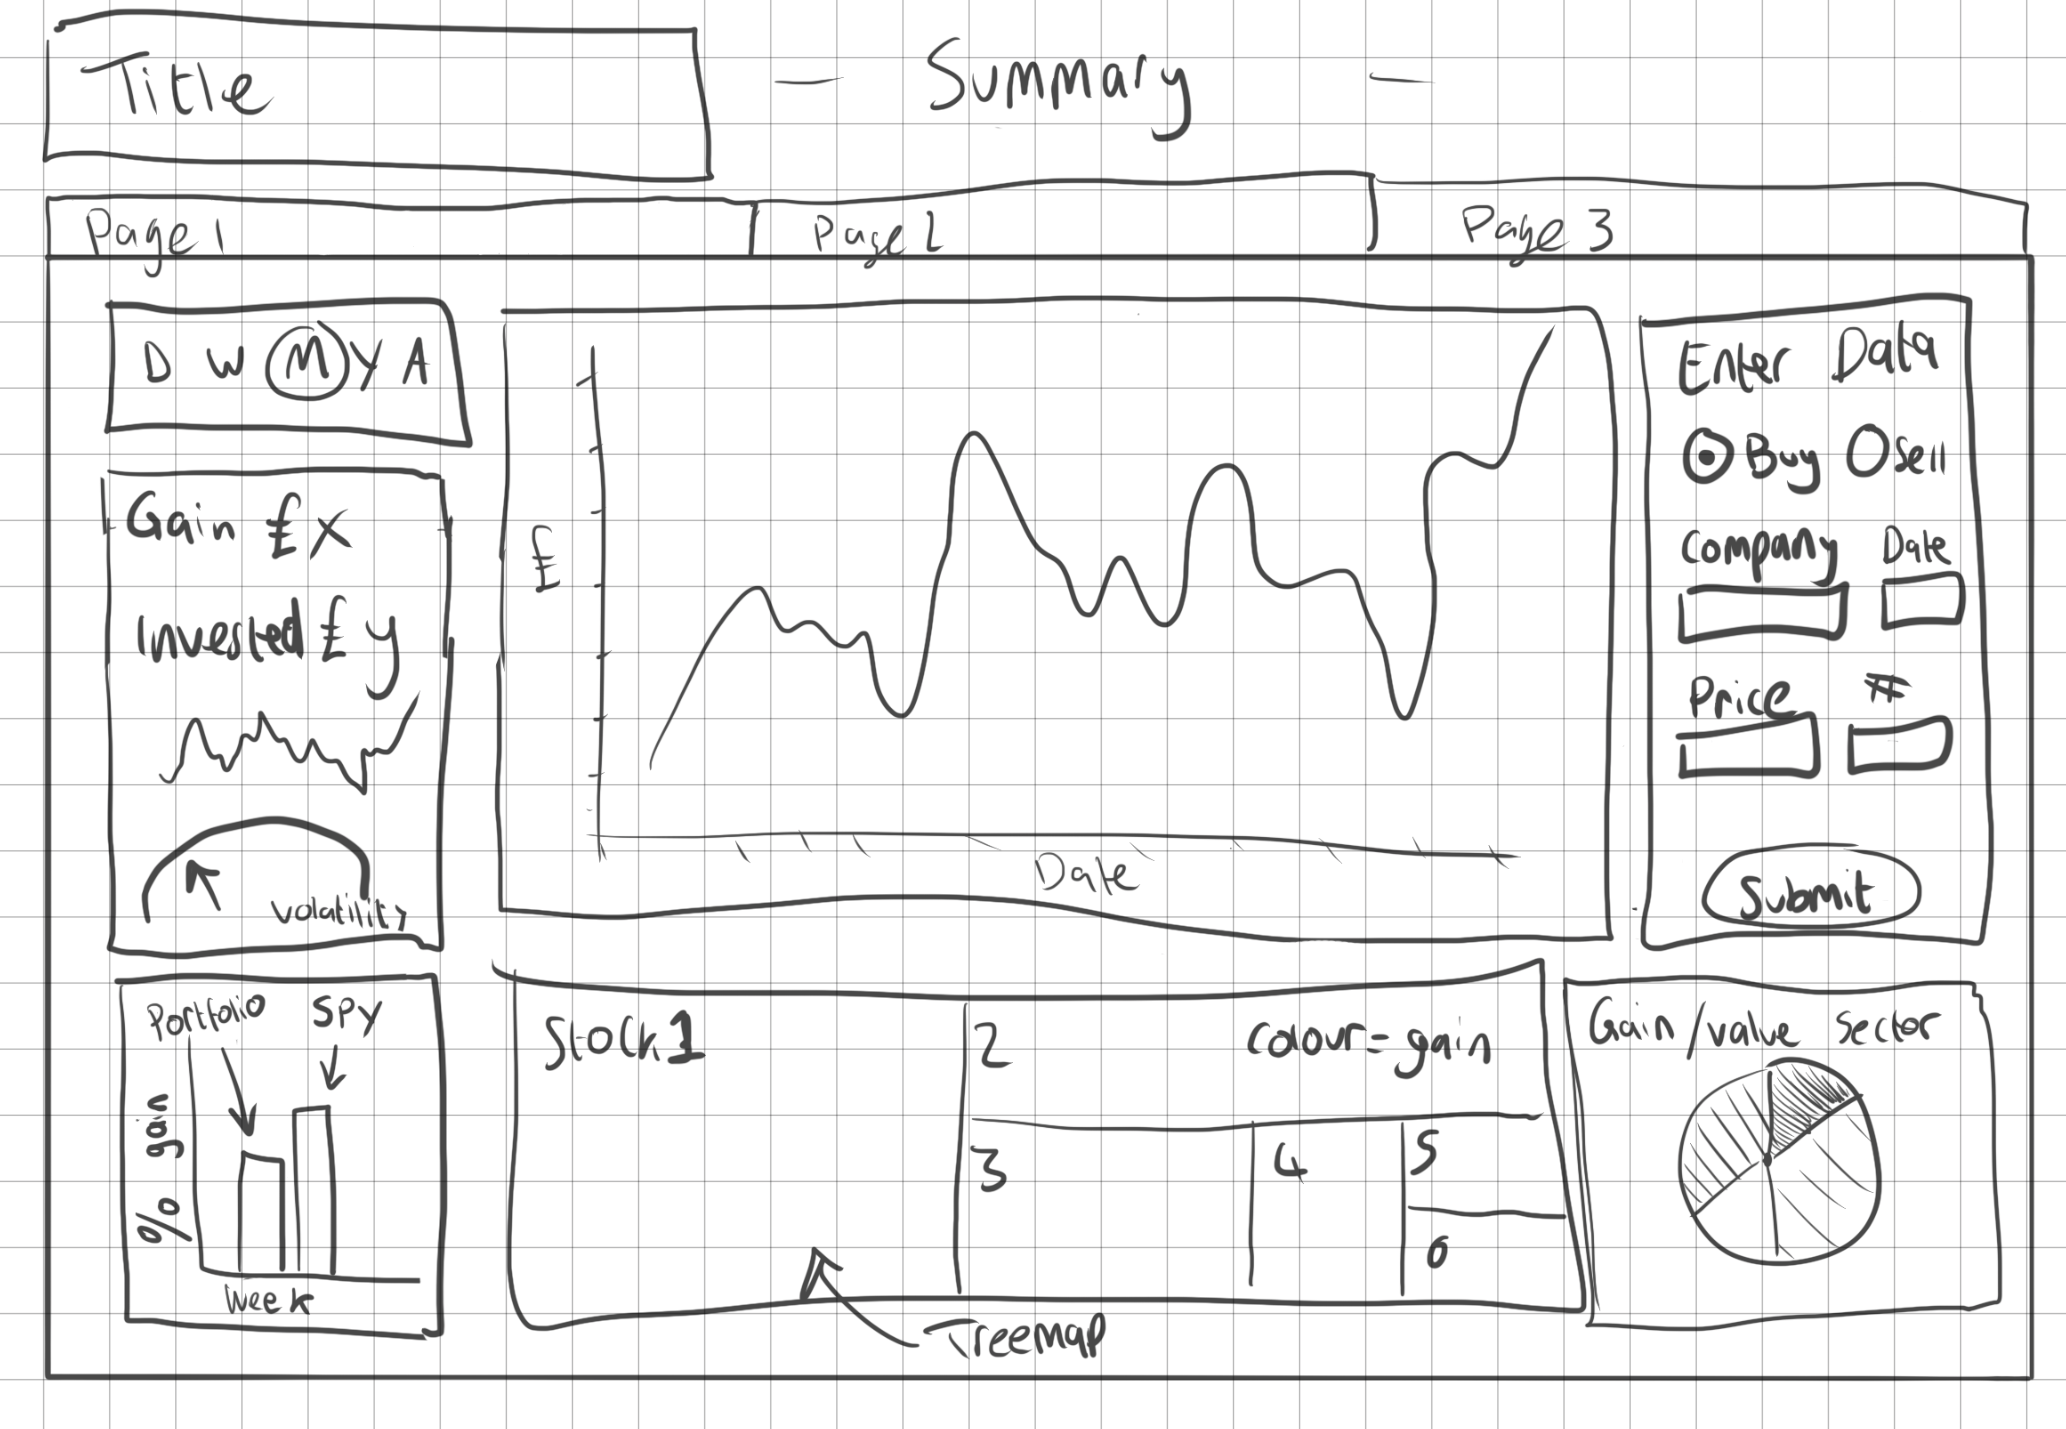 Title
Summary
Page 1
Page 2
Page 3
D W M Y A
Gain £ X
Invested £ y
Volatility
£
Date
Enter Data
Buy Sell
Company Date
Price #
Submit
Portfolio SPY
% gain
Week
Stock 1
2
colour = gain
3
4
5
6
Treemap
Gain / value Sector